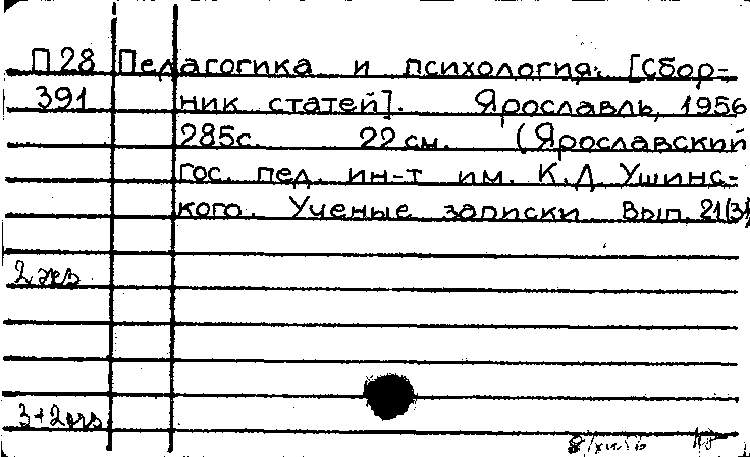 П28 Педагогика и психология. [Сбор-
391 ник статей]. Ярославль, 1956
285с. 22см. (Ярославский
гос. пед. ин-т им. К.Д. Ушинс-
кого. Ученые записки Вып. 21(31)
2 экз
3+2экз